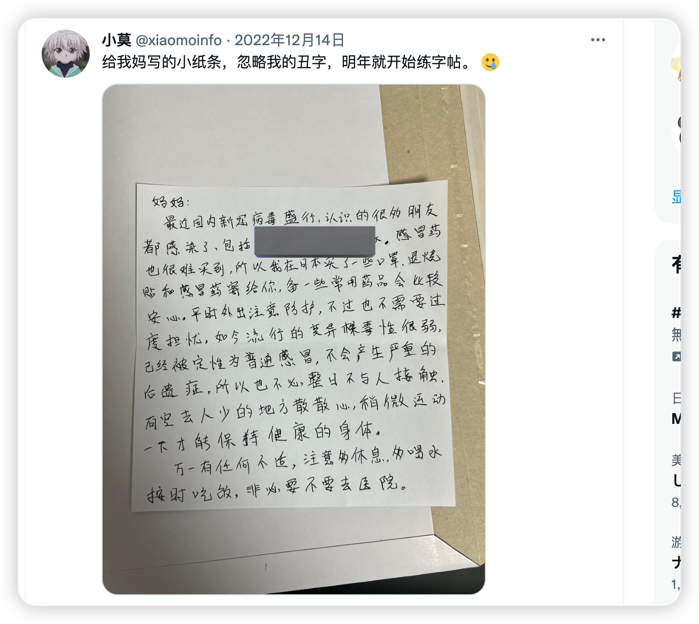 小莫 @xiaomoinfo · 2022年12月14日
给我妈写的小纸条，忽略我的丑字，明年就开始练字帖。🥲
妈妈：
最近国内新冠病毒盛行，认识的很多朋友
都感染了，包括 。感冒药
也很难买到，所以我在日本买了一些口罩、退烧
贴和感冒药寄给你，备一些常用药品会比较
安心。平时外出注意防护，不过也不需要过
度担忧，如今流行的变异株毒性很弱，
已经被定性为普通感冒，不会产生严重的
后遗症，所以也不必整日不与人接触。
有空去人少的地方散散心，稍微运动
一下才能保持健康的身体。
万一有任何不适，注意多休息，多喝水
按时吃饭，非必要不要去医院。
显
有
#
無
日
M
美
U
8,
游
ナ
1,